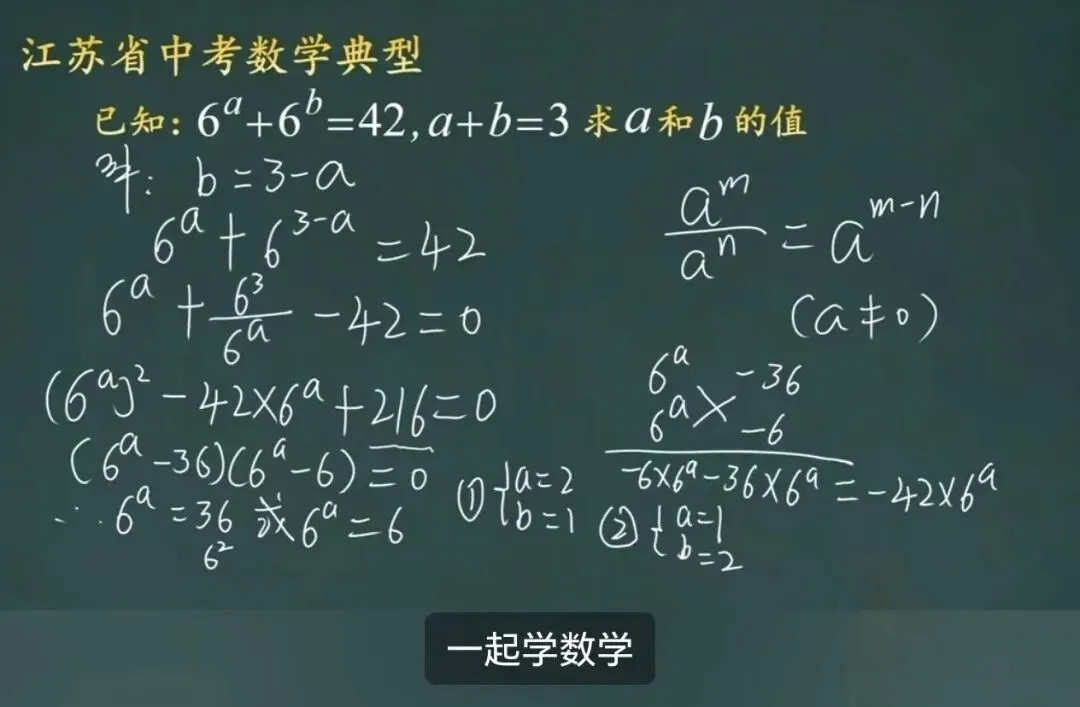 江苏省中考数学典型
已知: 6^a+6^b=42, a+b=3 求a和b的值
解: b=3-a
6^a+6^{3-a}=42
6^a+\frac{6^3}{6^a}-42=0
(6^a)^2-42×6^a+216=0
(6^a-36)(6^a-6)=0
∴6^a=36 或 6^a=6
6^2
① {a=2
b=1
② {a=1
b=2
\frac{a^m}{a^n}=a^{m-n}
(a≠0)
6^a -36
6^a -6
-6×6^a-36×6^a=-42×6^a
一起学数学